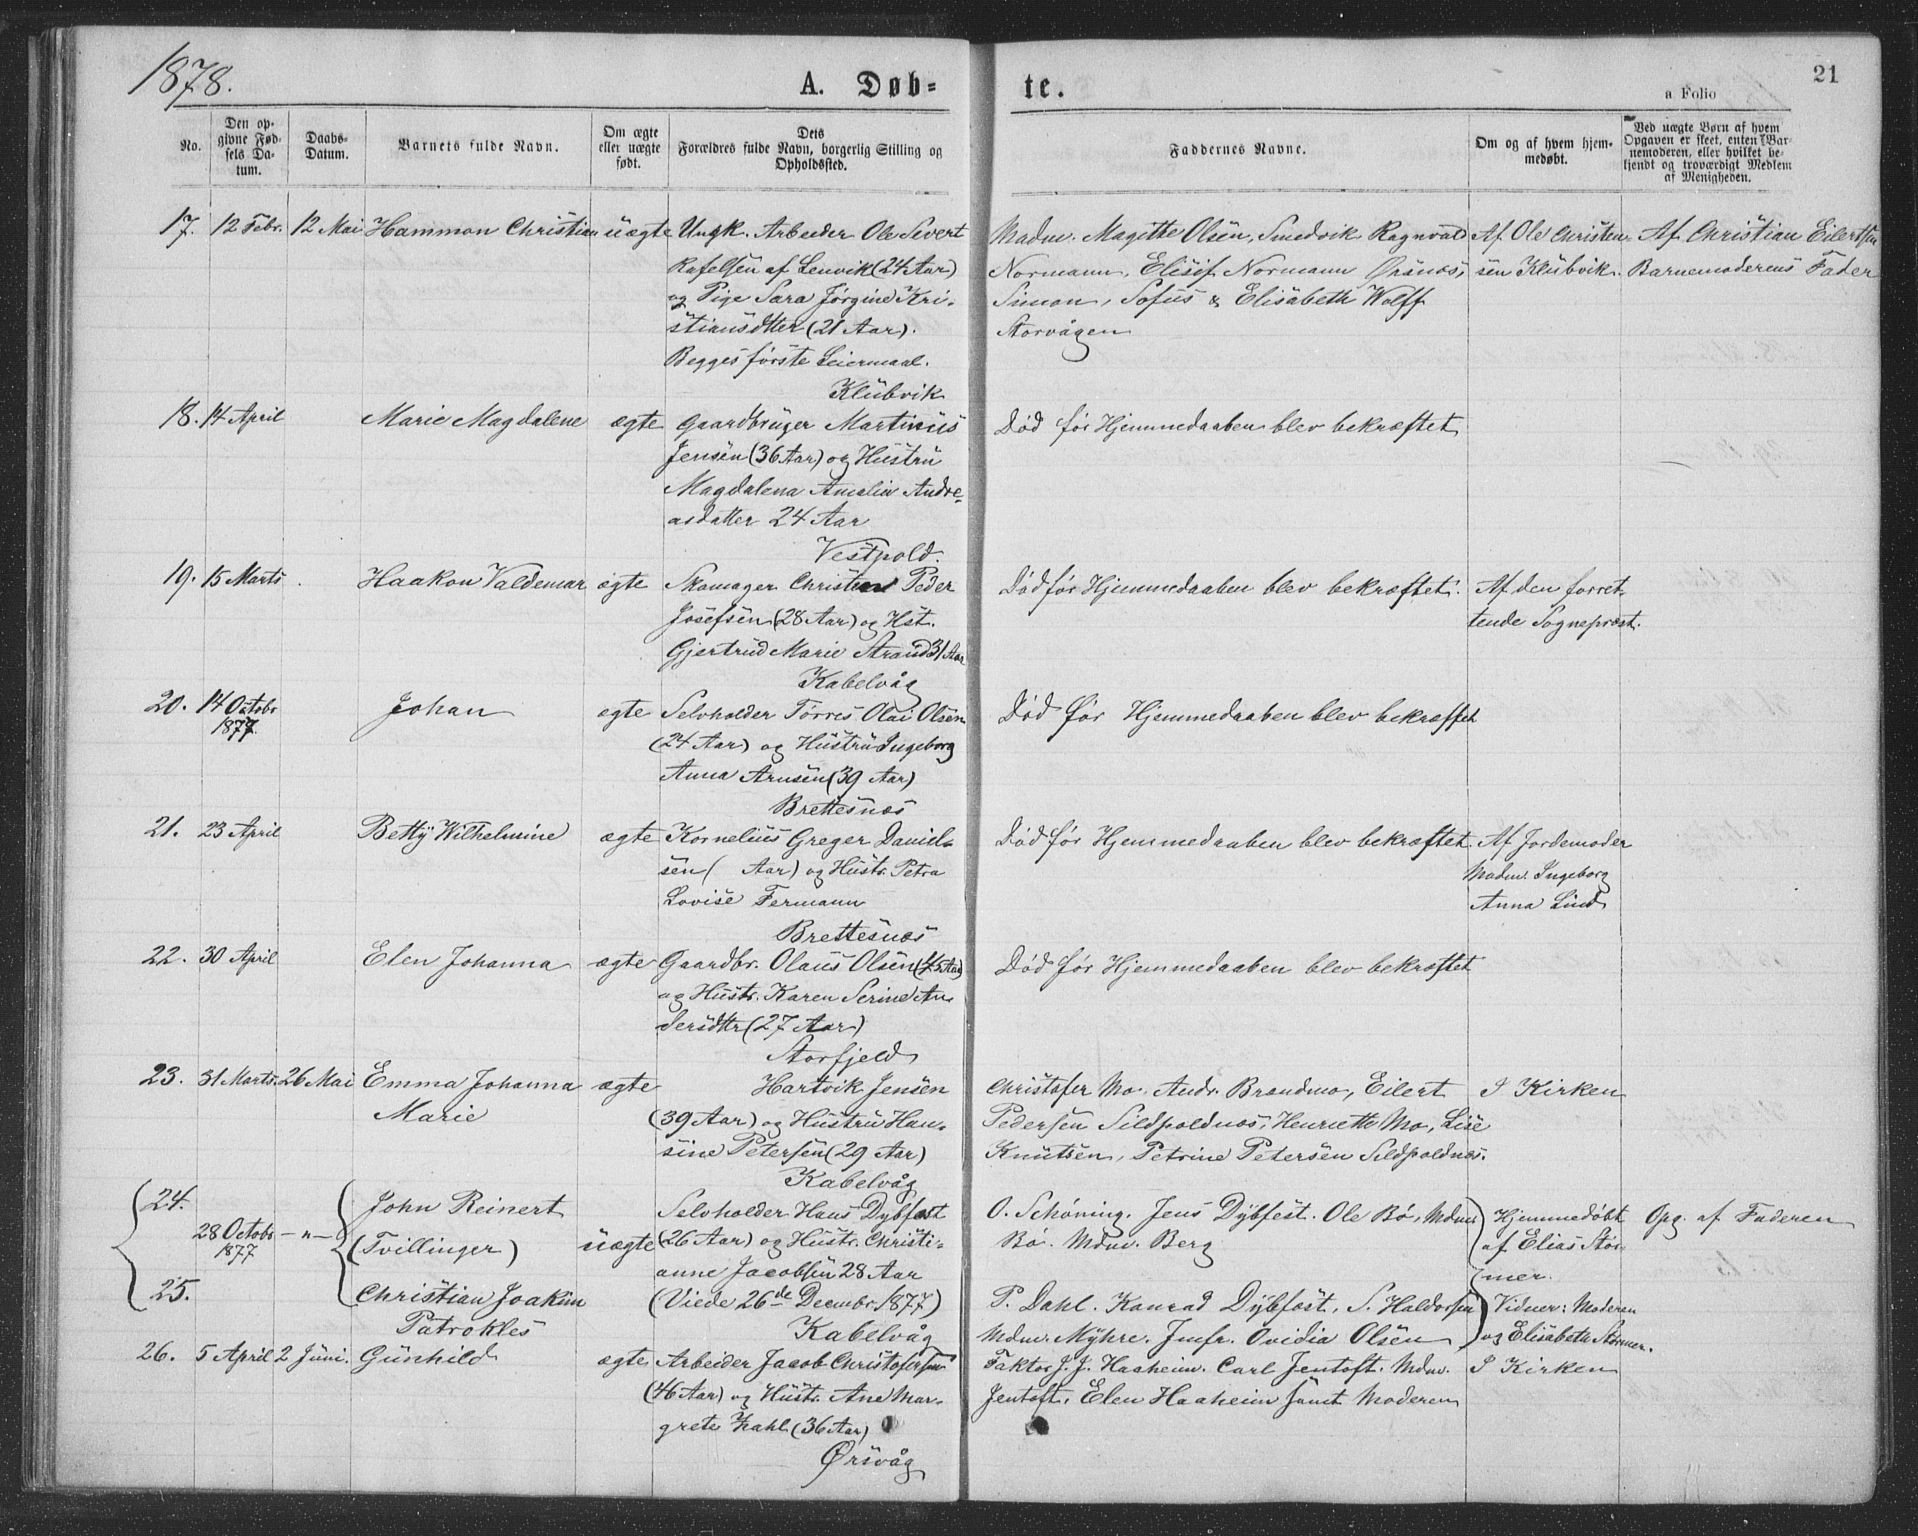 1878.
A. Døb-
te.
21
a. Folio
No.
Den op-
givne Fød-
sels Da-
tum.
Daabs-
Datum.
Barnets fulde Navn.
Om ægte
eller uægte
født.
Dets
Forældres fulde Navn, borgerlig Stilling og
Opholdssted.
Faddernes Navne.
Om og af hvem hjem-
medøbt.
Ved uægte Børn af hvem
Opgaven er skeet, enten Bar-
nemoderen, eller hvilket be-
kjendt og troværdigt Medlem
af Menigheden.
17. 12 Febr. 12 Mai Hammon Christian uægte Ungk. Arbeider Ole Sivert
Rafelsen af Lenvik (24 Aar)
og Pige Sara Jørgine Kri-
stiansdtter (21 Aar).
Begges første Leiermaal.
Klubvik
Madm. Magitte Olsen, Smedvik Ragnvald
Normann, Elisif Normann Ørsnæs,
Simon, Sofus & Elisabeth Wolff
Storvågen
Af Ole Christen-
sen Klubvik.
Af Christian Eilertsen
Barnemoderens Fader
18. 14 April Marie Magdalene ægte Gaardbruger Martinus
Jensen (36 Aar) og Hustru
Magdalena Amalia Andre-
asdatter 24 Aar
Vestpold.
Død før Hjemmedaaben blev bekræftet
19. 15 Marts Haakon Valdemar ægte Skomager Christen Peder
Josefsen (28 Aar) og Hst.
Gjertrud Marie Strand 31 Aar
Kabelvåg
Død før Hjemmedaaben blev bekræftet.
Af den forret-
tende Sognepræst.
20. 14 Octobr
1877. Johan ægte Selvholder Tørres Olai Olsen
(24 Aar) og Hustru Ingeborg
Anna Arnsen (39 Aar)
Brettesnæs
Død før Hjemmedaaben blev bekræftet
21. 23 April Betty Wilhelmine ægte Kornelius Greger Daniel-
sen ( Aar) og Hustr. Petra
Lovise Fermann
Brettesnæs
Død før Hjemmedaaben blev bekræftet.
Af Jordemoder
Madm. Ingeborg
Anna Lind
22. 30 April Elen Johanna ægte Gaardbr. Olaus Olsen (45 Aar)
og Hustr. Karen Serine An-
dersdttr (27 Aar)
Storfjeld
Død før Hjemmedaaben blev bekræftet
23. 31 Marts. 26 Mai Emma Johanna
Marie ægte Hartvik Jensen
(39 Aar) og Hustru Han-
sine Petersen (29 Aar)
Kabelvåg
Christofer Mo. Andr. Brandmo, Eilert
Pedersen Sildpoldnæs, Henriette Mo, Lise
Knutsen, Petrine Petersen Sildpoldnæs.
I Kirken
24. 28 Octobr
1877 - " - John Reinert
(Tvillinger) uægte
25. Christian Joakim
Patrokles
Selvholder Hans Dybfest
(26 Aar) og Hustr. Christi-
anne Jacobsen 28 Aar
(Viede 26de Decembr. 1877)
Kabelvåg
O. Schøning. Jens Dybfest. Ole Bø, Mdm.
Bø. Mdm. Berg
P. Dahl. Konrad Dybfest, S. Haldorsen
Mdm. Myhre. Jmfr. Ovidia Olsen
Hjemmedøbt
af Elias Stør-
mer.
Vidner: Moderen
og Elisabeth Størmer.
Opg. af Faderen
26. 5 April 2 Juni. Gunhild ægte Arbeider Jacob Christofersen
(46 Aar) og Hustr. Ane Mar-
grete Kahl (36 Aar)
Ørsvåg
Faktor J. J. Haaheim. Carl Jentoft. Mdm.
Jentoft, Elen Haaheim samt Moderen
I Kirken